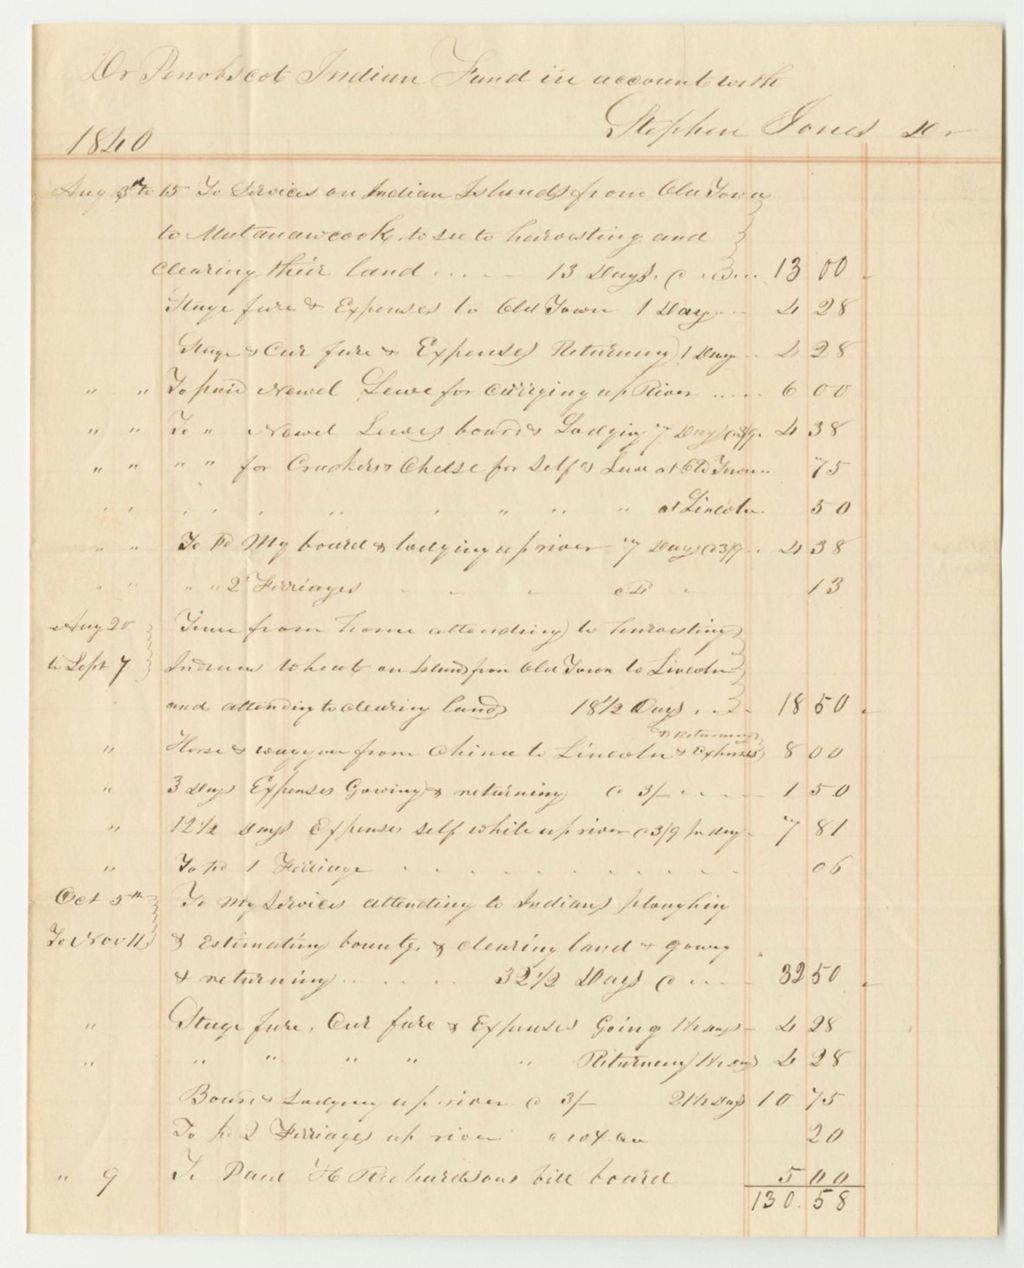 Dr Penobscot Indian Fund in account with
Stephen Jones Dr
1840
Aug 3d to 15 To Services on Indian Islands from Old Town
to Matanawcook, to see to harvesting and
clearing their land .... 13 Days @ 13 00
Stage fare & Expenses to Old Town 1 Day 4 28
Stage & Car fare & Expenses Returning 1 Day 4 28
" " To paid Newel Lewe for carrying up River 6 00
" " To " Newel Lewes board & Lodging 7 Days @ 3/9 4 38
" " " " for Crackers & Cheese for Self & Lewe at Old Town 75
" " " " " " at Lincoln 50
" " To Pd My board & lodging up river 7 Days @ 3/9 4 38
" " " " 2 Ferriages 13
Aug 20 Time from home attending to harvesting
to Sept 7 Indian wheat on Islands from Old Town to Lincoln
and attending to clearing land 18 1/2 Days 18 50
& Returning
" Horse & waggon from China to Lincoln & Expenses 8 00
" 3 Days Expenses Gowing & returning @ 3/ 1 50
" 12 1/2 Days Expenses self while up river @ 3/9 pr day 7 81
" To Pd 1 Ferriage 06
Oct 5th To my Services attending to Indians ploughing
To Nov 11 & Estimating bounty, & clearing land & gowing
& returning 32 1/2 Days @ 32 50
" Stage fare, Car fare & Expenses Going 1 1/2 Days 4 28
" " " " " " Returning 1 1/2 Days 4 28
Board & Lodging up river @ 3/ 21 1/2 Days 10 75
To pd 2 Ferriages up river 20
" 9 To Paid H Richardsons bill board 5 00
130.58